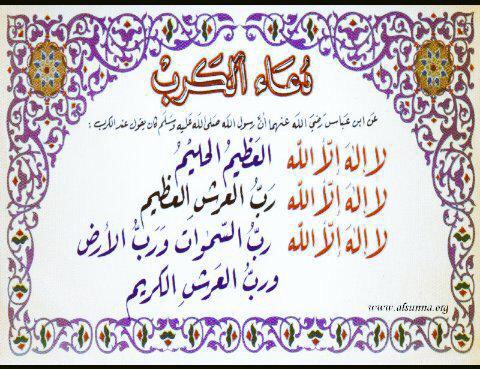 دُعَاء الكَرب
عَن ابن عَبَاس رَضيَ اللهُ عَنهما أنَّ رسُول الله صَلى الله عَليهِ وَسَلم كانَ يقول عند الكرب :
لا إلهَ إلّا الله العَظيمُ الحَليمُ
لا إلهَ إلّا الله رَبُّ العَرشِ العظِيم
لا إلهَ إلّا الله ربُّ السَّموَاتِ وَرَبُّ الأَرضِ
وربُّ العَرشِ الكَريم
www.alsunna.org